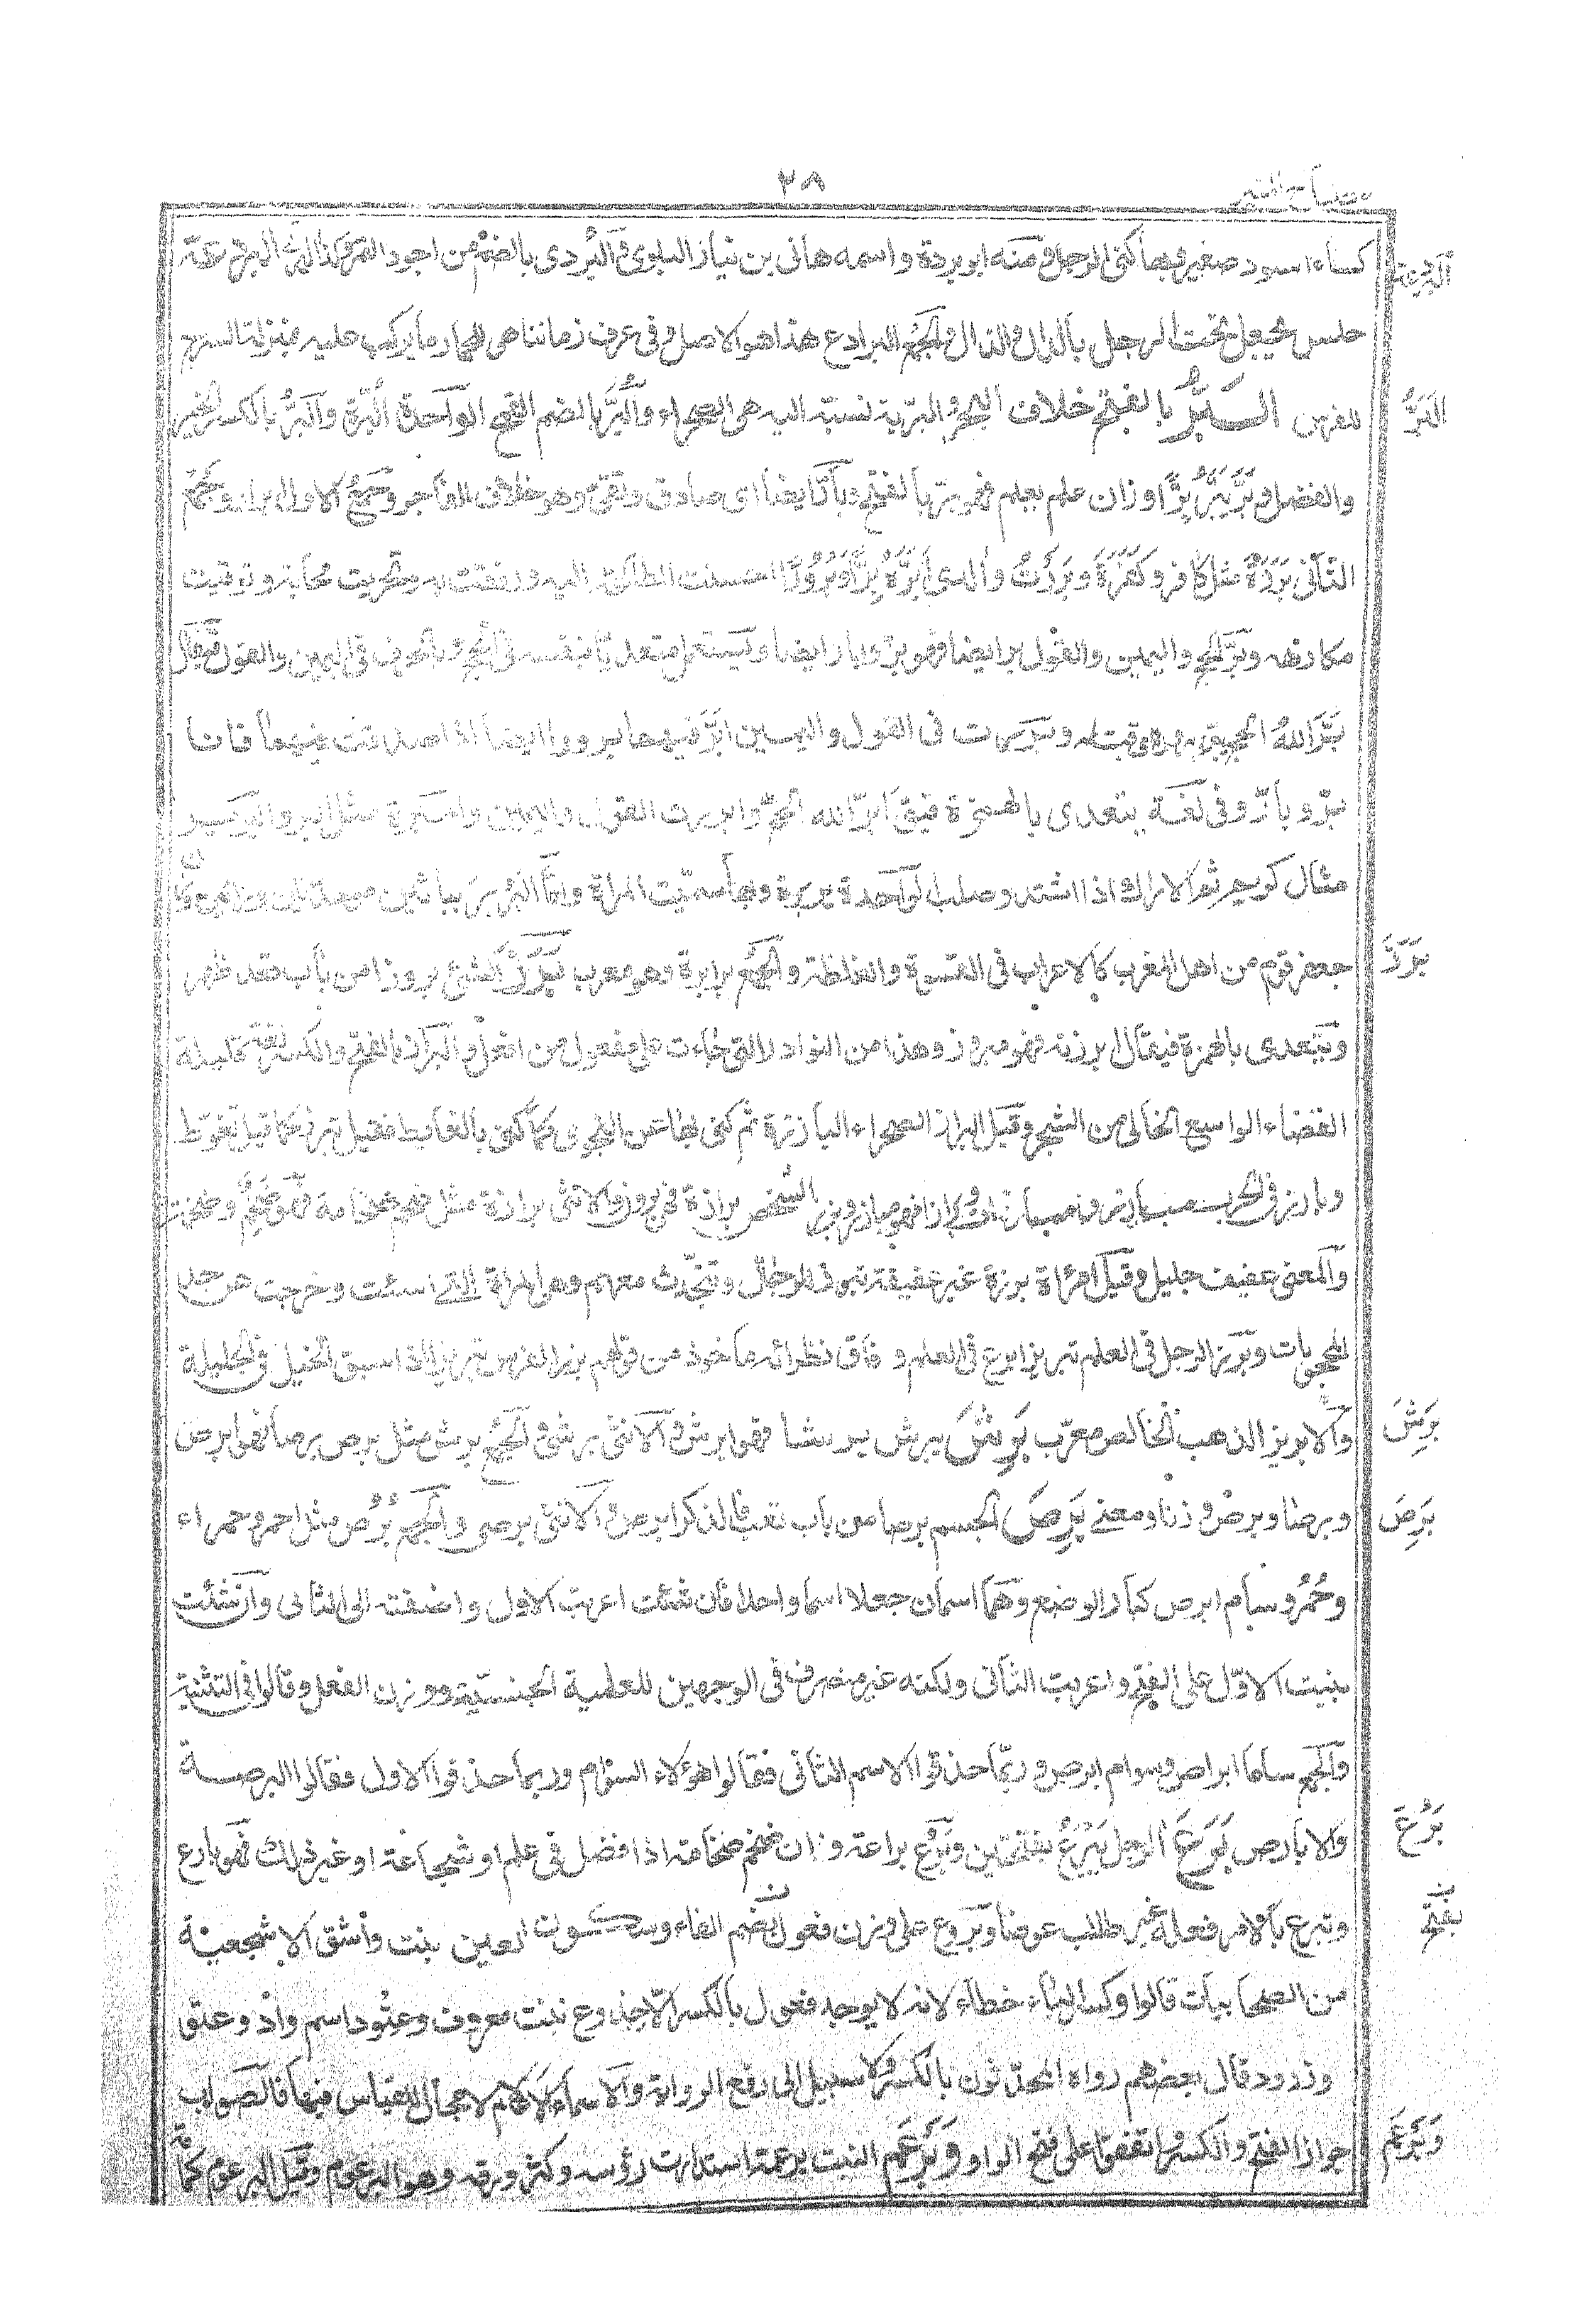 مصباح المنير
٢٨
كساء اسود صغير وبها كنى الرجل ومنه ابو بردة واسمه هانى بن نيار البلوى والبردى بالضم من اجود التمر البردعة
حلس يجعل تحت الرحل بالدال والذال والجمع البرادع هذا هو الاصل وفى عرف زماننا هى للحمار ما يركب عليه بمنزلة السرج
للفرس البَرُّ بالفتح خلاف البحر والبرية نسبة اليه هى الصحراء والبُرّ بالضم القمح الواحدة البُرّة والبِرّ بالكسر الخير
والفضل وبَرَّ يَبَرُّ بِرًّا وزان علم يعلم فهو بر بالفتح وبارٌّ ايضا اى صادق وتقى وهو خلاف الفاجر وجمع الاول ابرار وجمع
الثانى بررة مثل كافر وكفرة وبررت والدى ابَرُّه بِرًّا وبُرُورًا احسنت الطاعة اليه ورفقت به وتحريت محابه وتوقيت
مكارهه وبَرَّ الحج واليمين والقول برا ايضا فهو بَرٌّ وبار ايضا ويستعمل متعديا بنفسه فى الحج وبالحرف فى اليمين والقول فيقال
بَرَّ الله الحج يبره قبله وبررت فى القول واليمين ابَرّ فيهما برورا ايضا اذا صدقت فيهما فانا
بَرّ وبارّ وفى لغة يتعدى بالهمزة فيق ابرّ الله الحج وابررت القول واليمين والمبرة مثل البر والبرير
مثال كريم ثمر الاراك اذا اشتد وصلب الواحدة بريرة وبها سميت المراة واما البربر بباءين
جعفر قوم من اهل المغرب كالاعراب فى القسوة والغلظة والجمع برابرة وهو معرب بَرَزَ الشئ بروزا من باب قعد ظهر
ويتعدى بالهمزة فيقال ابرزته فهو مبروز وهذا من النوادر التى جاءت على مفعول من افعل والبراز بالفتح والكسر لغة قليلة
الفضاء الواسع الخالى من الشجر وقيل البراز الصحراء البارزة ثم كنى به عن النجو كما كنى بالغائط فقيل تبرز كما قيل تغوط
وبارز فى الحرب مبارزة وبرازا فهو مبارز وبرز الشخص برازة فهو برز والانثى برزة مثل ضخم ضخامة فهو ضخم وضخمة
والمعنى عفيف جليل وقيل امراة برزة عفيفة تبرز للرجال وتتحدث معهم وهى المراة التى اسنت وخرجت عن حد
المحجوبات وبَرَّز الرجل فى العلم تبريزا برع فى العلم وفاق نظرائه ماخوذ من قولهم برز الفرس تبريزا اذا سبق الخيل فى الحلبة
والابريز الذهب الخالص معرّب بَرِشَ يبرش برشا فهو ابرش والانثى برشى والجمع برش مثل برص برصا فهو ابرص
وبرصا وبرص وزنا ومعنى بَرِصَ الجسم برصا من باب تعب فالذكر ابرص والانثى برصى والجمع بُرْص مثل احمر وحمراء
وحُمْر وسام ابرص كبار الوزغ وهما اسمان جعلا اسما واحدا فان شئت اعربت الاول واضفته الى الثانى وان شئت
بنيت الاوّل على الفتح واعربت الثانى ولكنه غير منصرف فى الوجهين للعلمية الجنسيّة ووزن الفعل وقالوا فى التثنية
والجمع ساما ابراص وسوام ابرص وربّما حذفوا الاسم الثانى فقالوا هؤلاء السوام وربما حذفوا الاول فقالوا البرصة
والابارص بَرَعَ الرجل يبرع بفتحتين وبرُع براعة وزان ضخم ضخامة اذا فضل فى علم او شجاعة او غير ذلك فهو بارع
وتبرع بالامر فعله غير طالب عوضا وبروع على وزن فعول بضم الفاء وسكون العين بنت واشق الاشجعية
من الصحابيات قالوا وكسر الباء خطاء لانه لا يوجد فعول بالكسر الا خروع نبت معروف وعتود اسم واد وعتور
وذرود قال بعضهم رواه المحدثون بالكسر ولا سبيل الى رفع الرواية والاسماء الاعلام لا مجال للقياس فيها فالصواب
جواز الفتح والكسر واتفقوا على فتح الواو وبَرْعَم النبت برعمة استدارت رؤسه وكثر ورقه وهو البرعوم وقيل البرعوم كما
البردعة
البَرُّ
بَرَزَ
بَرِشَ
بَرِصَ
بَرُعَ
بفتح
وبَرْعَم